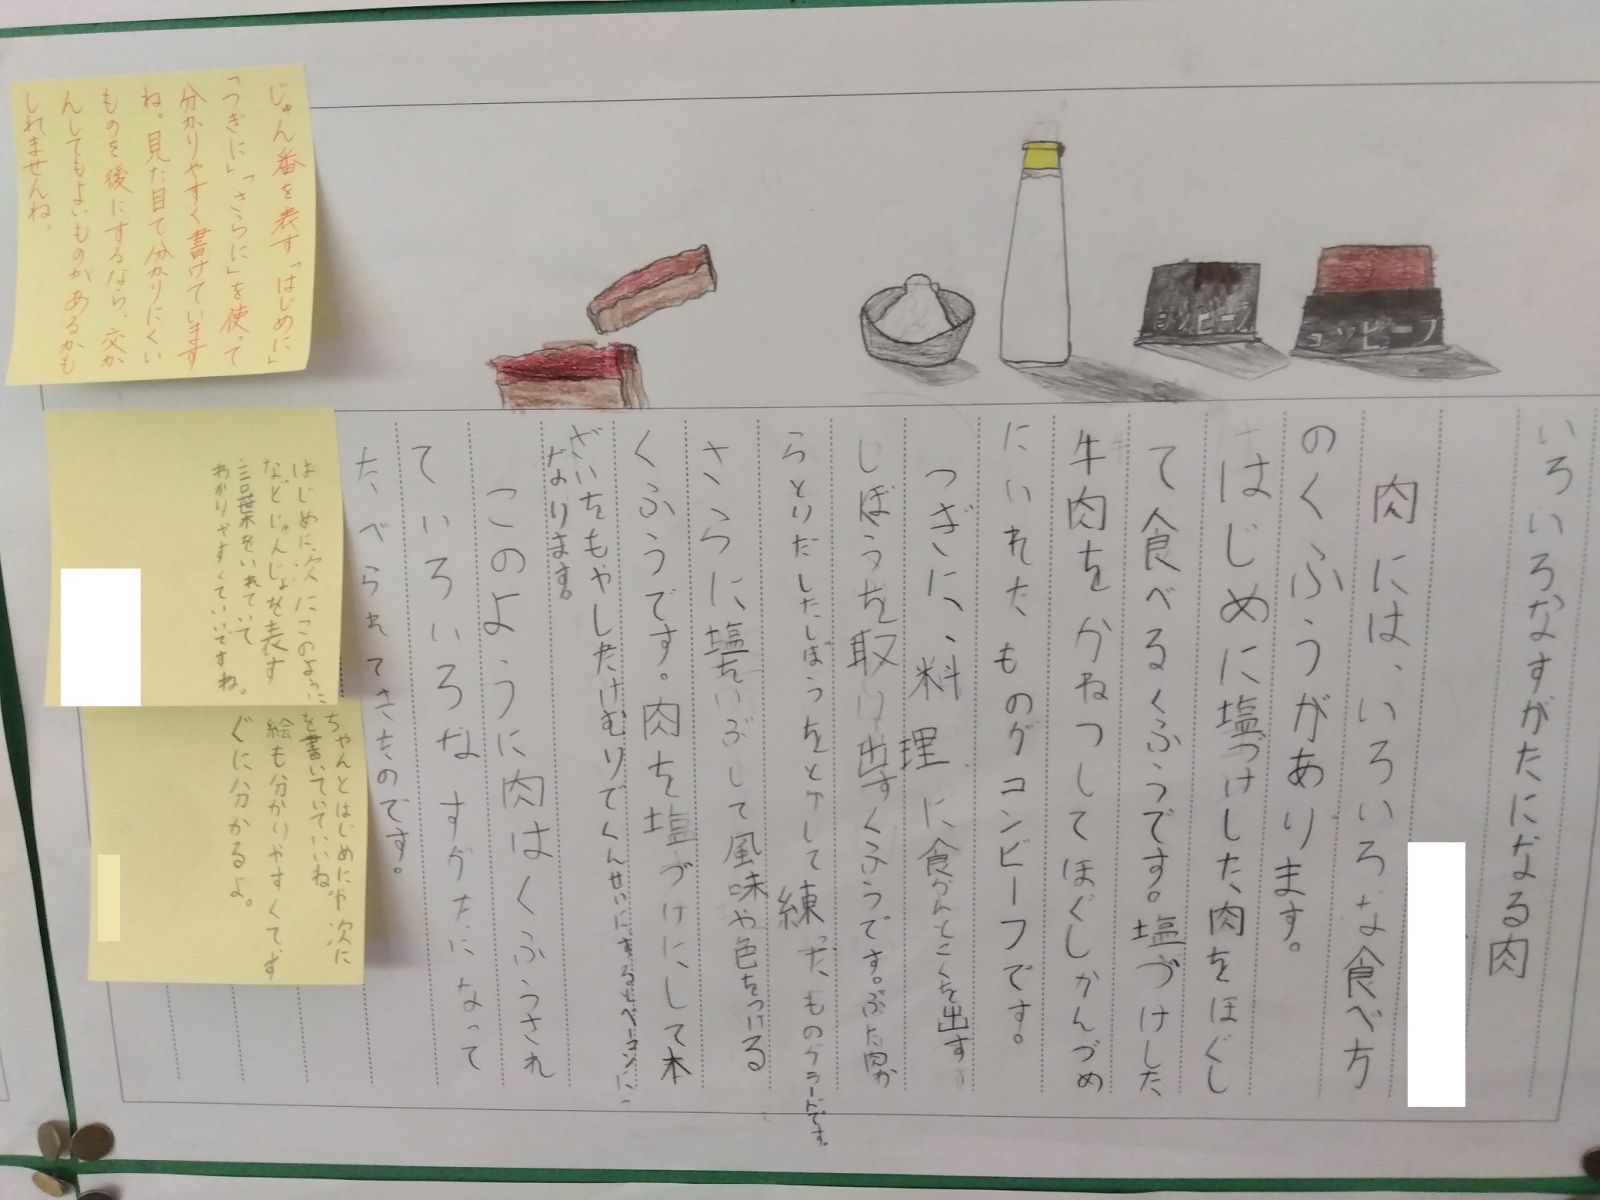 いろいろなすがたになる肉
肉には、いろいろな食べ方
のくふうがあります。
はじめに塩づけした、肉をほぐし
て食べるくふうです。塩づけした
牛肉をかねつしてほぐしかんづめ
にいれたものがコンビーフです。
つぎに、料理に食かんとこくを出す
しぼうを取り出すくふうです。ぶた肉か
らとりだしたしぼうをとかして練ったものがラードです。
さらに、塩をいぶして風味や色をつける
くふうです。肉を塩づけにして木
ざいをもやしたけむりでくんせいにするとベーコンに
なります。
このように肉はくふうされ
ていろいろなすがたになって
たべられてきたのです。
コンビーフ
コンビーフ
じゅん番を表す「はじめに」
「つぎに」「さらに」を使って
分かりやすく書けています
ね。見た目で分かりにくい
ものを後にするなら、交か
んしてもよいものがあるかも
しれませんね。
はじめに、次にこのように
などじゅんじょを表す
言葉をいれていて
わかりやすくていいですね。
ちゃんとはじめにや次に
を書いていていいね。
絵も分かりやすくて、す
ぐに分かるよ。